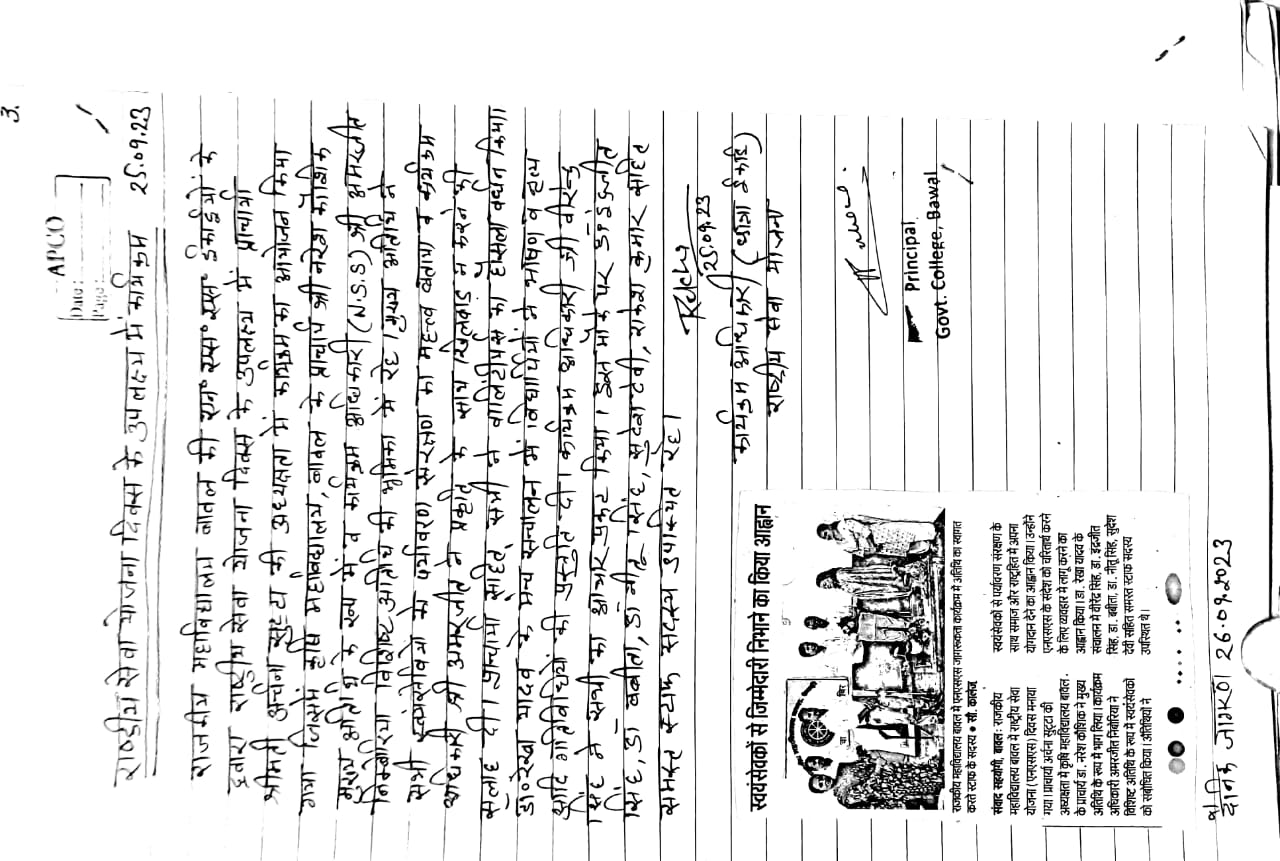 3.
APCO
Date :
Page :
राष्ट्रीय सेवा योजना दिवस के उपलक्ष्य में कार्यक्रम 25.09.23
राजकीय महाविद्यालय बावल की एन॰ एस॰ एस॰ इकाईयों के
द्वारा राष्ट्रीय सेवा योजना दिवस के उपलक्ष्य में प्राचार्या
श्रीमती अर्चना खुट्टा की अध्यक्षता में कार्यक्रम का आयोजन किया
गया जिसमें कृषि महाविद्यालय, बावल के प्राचार्य श्री नरेश कौशिक
मुख्य अतिथि के रूप में व कार्यक्रम अधिकारी (N.S.S) श्री अमरजीत
विशिष्ट अतिथि की भूमिका में रहे। मुख्य अतिथि ने
सभी को पर्यावरण संरक्षण का महत्त्व बताया व कार्यक्रम
अधिकारी श्री अमरजीत ने प्रकृति के साथ खिलवाड़ न करने की
सलाह दी। प्राचार्या सहित सभी ने वालंटीयर्स का हौंसला वर्धन किया।
डॉ॰ रेखा यादव के मंच सन्चालन में विद्यार्थियों ने भाषण व नृत्य
आदि गतिविधियों की प्रस्तुति दी। कार्यक्रम अधिकारी श्री वीरेन्द्र
सिंह ने सभी का आभार प्रकट किया। इस मौके पर डॉ इंद्रजीत
सिंह, डॉ बबीता, डॉ नीतू सिंह, सुदेश देवी, राकेश कुमार सहित
समस्त स्टाफ सदस्य उपस्थित रहे।
25.09.23
कार्यक्रम अधिकारी (छात्रा ईकाई)
राष्ट्रीय सेवा योजना
Principal
Govt. College, Bawal
स्वयंसेवकों से जिम्मेदारी निभाने का किया आह्वान
राजकीय महाविद्यालय बावल में एनएसएस जागरूकता कार्यक्रम में अतिथि का स्वागत
करते स्टाफ के सदस्य ● सौ. कालेज
संवाद सहयोगी, बावल: राजकीय
महाविद्यालय बावल में राष्ट्रीय सेवा
योजना (एनएसएस) दिवस मनाया
गया। प्राचार्या अर्चना खुट्टा की
अध्यक्षता में कृषि महाविद्यालय बावल .
के प्राचार्य डा. नरेश कौशिक ने मुख्य
अतिथि के रूप में भाग लिया। कार्यक्रम
अधिकारी अमरजीत निंबोरिया ने
विशिष्ट अतिथि के रूप में स्वयंसेवकों
को संबोधित किया। अतिथियों ने
स्वयंसेवकों से पर्यावरण संरक्षण के
साथ समाज और राष्ट्रहित में अपना
योगदान देने का आह्वान किया। उन्होंने
एनएसएस के संदेश को चरितार्थ करने
के लिए व्यवहार में लागू करने का
आह्वान किया। डा. रेखा यादव के
संचालन में वीरेंद्र सिंह, डा. इंद्रजीत
सिंह, डा. बबीता, डा. नीतू सिंह, सुदेश
देवी सहित समस्त स्टाफ सदस्य
उपस्थित थे।
दैनिक जागरण 26.09.2023